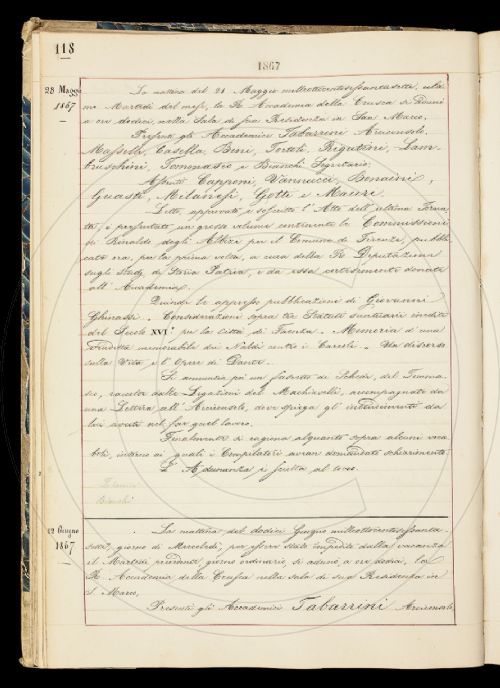 118
1867
28 Maggio
1867
La mattina del 28 Maggio milleottocentosessantasette, ulti-
mo Martedì del mese, la R. Accademia della Crusca si adunò
a ore dodici, nella Sala di sua Residenza in San Marco.
Presenti gli Accademici Tabarrini Arciconsolo,
Massello, Casella, Bini, Tortoli, Rigutini, Lam-
bruschini, Tommaseo, e Bianchi Segretario.
Assenti Capponi, Vannucci, Bonaini,
Guasti, Milanesi, Gotti e Mauri.
Letto, approvato e soscritto l'Atto dell'ultima Torna-
ta, è presentato un grosso volume contenente le Commissioni
di Rinaldo degli Albizi per il Comune di Firenze, pubbli-
cate ora, per la prima volta, a cura della R. Deputazione
sugli Studj di Storia Patria, e da essa cortesemente donate
all'Accademia.
Quindi le appresso pubblicazioni di Giovanni
Ghinassi. Considerazioni sopra tre Statuti suntuarii inediti
del Secolo XVI. per la città di Faenza. Memoria d'una
vendetta memorabile dei Naldi contro i Caroli. Un discorso
sulla Vita e l'Opere di Dante.
Si annunzia poi un fascetto di Schede, del Tomma-
seo, raccolte dalle Legazioni del Machiavelli, accompagnate da
una Lettera all'Arciconsolo, dove spiega gl'intendimenti da
lui avuti nel far quel lavoro.
Finalmente si ragiona alquanto sopra alcuni voca-
boli, intorno ai quali i Compilatori avean domandati schiarimenti.
L'Adunanza è sciolta al tocco.
Bianchi
12 Giugno
1867
La mattina del dodici Giugno milleottocentosessanta-
sette, giorno di Mercoledì, per essere stata impedita dalla vacanza
il Martedì precedente giorno ordinario, si adunò, a ore dodici, la
R. Accademia della Crusca nella sala di sua Residenza in
S. Marco.
Presenti gli Accademici Tabarrini Arciconsolo,